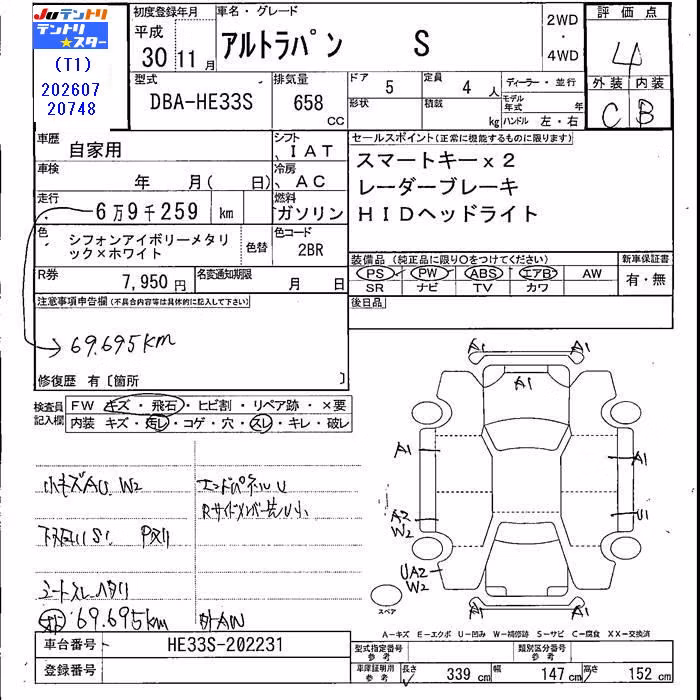 JUテントリ
テントリ★スター
(T1)
202607
20748
初度登録年月
平成
30 11月
車名・グレード
アルトラパン S
2WD
・
4WD
評価点
4
外装 内装
C B
型式
DBA-HE33S
排気量
658
CC
ドア 5
形状
定員 4 人
積載 kg
ディーラー・並行
モデル年式 年
ハンドル 左・右
車歴
自家用
シフト
、IAT
車検
年 月( 日)
冷房
、AC
走行
6万9千259 km
燃料
ガソリン
色
シフォンアイボリーメタリ
ック×ホワイト
色替
色コード
2BR
R券
7,950円
名変通知期限
月 日
セールスポイント(正常に機能するものに限ります)
スマートキーx2
レーダーブレーキ
HIDヘッドライト
装備品(純正品に限り○をつけてください)
新車保証書
PS PW ABS エアB AW
有・無
SR ナビ TV カワ
後日品
注意事項申告欄(不具合内容等は具体的に記入して下さい)
69.695km
修復歴 有〔箇所 〕
検査員
記入欄
FW キズ・飛石・ヒビ割・リペア跡・×要
内装 キズ・汚レ・コゲ・穴・スレ・キレ・破レ
小キズAU W2
エンドパネルU
Rサイドメンバー先ハU小
下廻りS1
シートスレ ヘタリ
69.695km
外AW
A1 A1
A1
A1
A1
A2
W2
U1
UA2
W2
A1 A1
スペア
A-キズ E-エクボ U-凹み W-補修跡 S-サビ C-腐食 XX-交換済
車台番号
HE33S-202231
登録番号
型式指定番号
参考
類別区分番号
参考
車庫証明用
参考
長さ 339 cm 幅 147 cm 高さ 152 cm